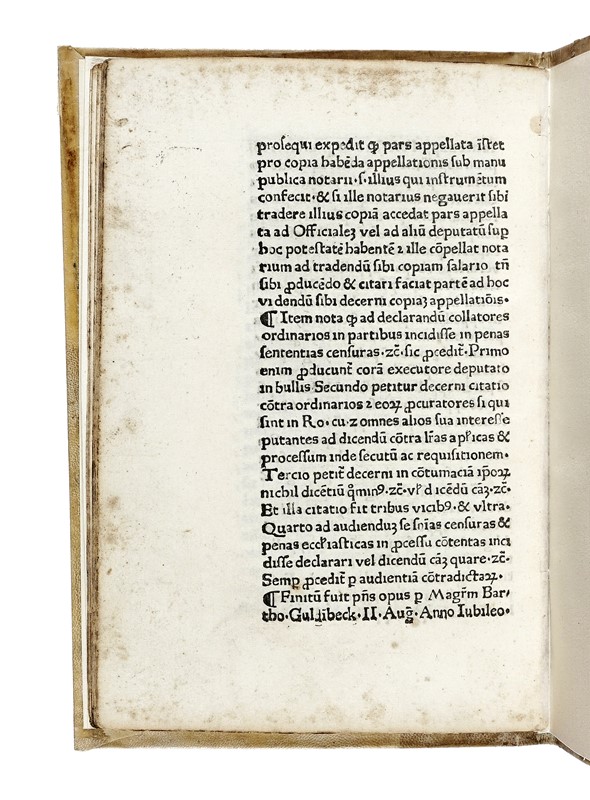 prosequi expedit ꝙ pars appellata īstet
pro copia habēda appellationis sub manu
publica notarii·s·illius qui instrumētum
confecit·& si ille notarius negauerit sibi
tradere illius copiā accedat pars appella
ta ad Officialeꝫ vel ad aliū deputatū sup
hoc potestatē habentē ⁊ ille cōpellat nota
rium ad tradendū sibi copiam salario tñ
sibi ꝓducēdo & citari faciat partē ad hoc
videndū sibi decerni copiaꝫ appellatiōis·
¶ Item nota ꝙ ad declarandū collatores
ordinarios in partibus incidisse in penas
sententias censuras·⁊c̄·sic ꝓcedit᷑·Primo
enim ꝓducunt᷑ corā executore deputato
in bullis Secundo petitur decerni citatio
cōtra ordinarios ⁊ eoꝝ ꝓcuratores si qui
sint in Ro·cu·⁊ omnes alios sua interesse
putantes ad dicendū cōtra lr̄as ap̄licas &
processum inde secutū ac requisitionem·
Tercio petit᷑ decerni in cōtumaciā ip̄oꝝ
nichil dicētiū q̄minꝰ·⁊c̄·vl̄ dicēdū cāꝫ·⁊c̄·
Et illa citatio fit tribus vicibꝰ·& vltra·
Quarto ad audienduꝫ se sn̄ias censuras &
penas eccl̄iasticas in ꝓcessu cōtentas inci
disse declarari vel dicendū cāꝫ quare·⁊c̄·
Semꝑ ꝓcedit᷑ ꝑ audientiā cōtradictaꝝ·
¶ Finitū fuit pn̄s opus ꝑ Magr̄m Bar⸗
tho·Guldībeck·II·Auḡ·Anno Iubileo·